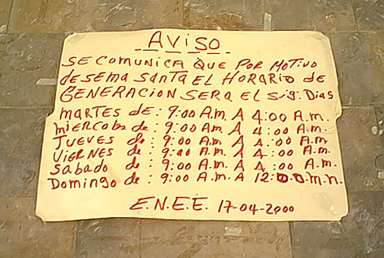 AViSO.
SE COMUNICA QUE POR MOTIVO
DE SEMA SANTA EL HORARIO de
GENERACION SERA EL SiG. DiAS
MARTES de : 9:00 A.M. A 4:00 A.M.
MiERCOles de : 9:00 A.M A 4:00 A.m.
JUEVES de : 9:00 A.m. A 4:00 A.m.
ViERNES de : 9:00 A.M. A 4:00 A.M.
SAbAdO de : 9:00 A.M. A 4:00 A.m.
DomiNgo de : 9:00 A.M.A 12:0.0.M.N.
E.N.E.E. 17-04-2000